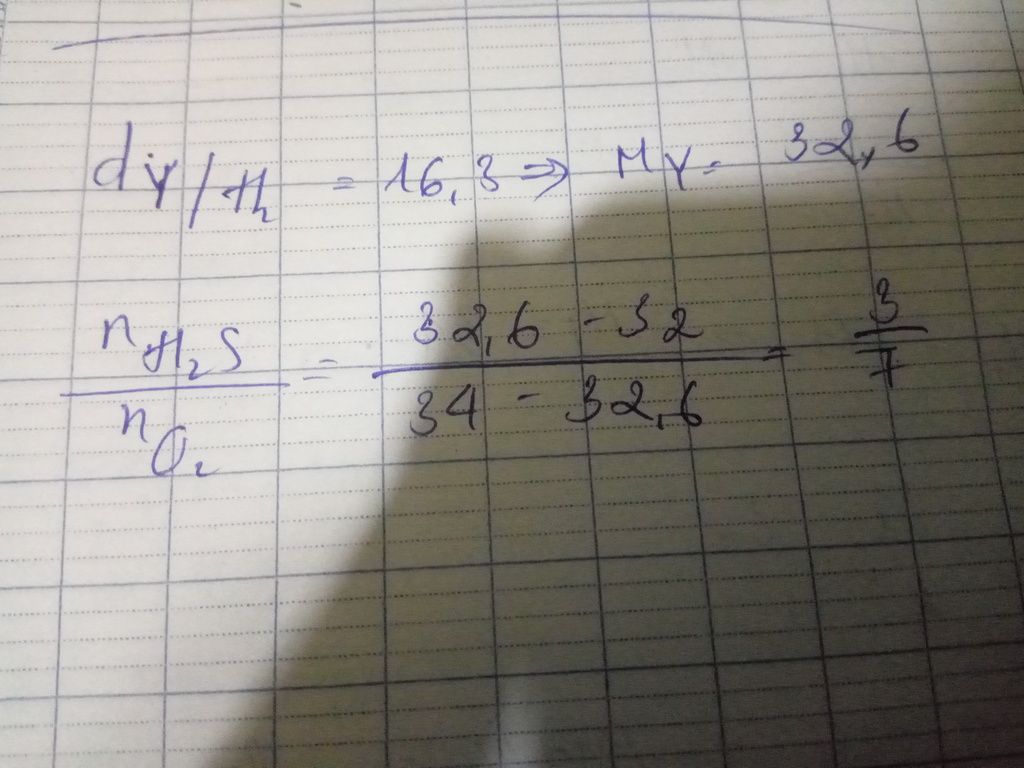 dY/H₂ = 16,3 ⇒ MY = 32,6
nH₂S / nO₂ = (32,6 - 32) / (34 - 32,6) = 3/7